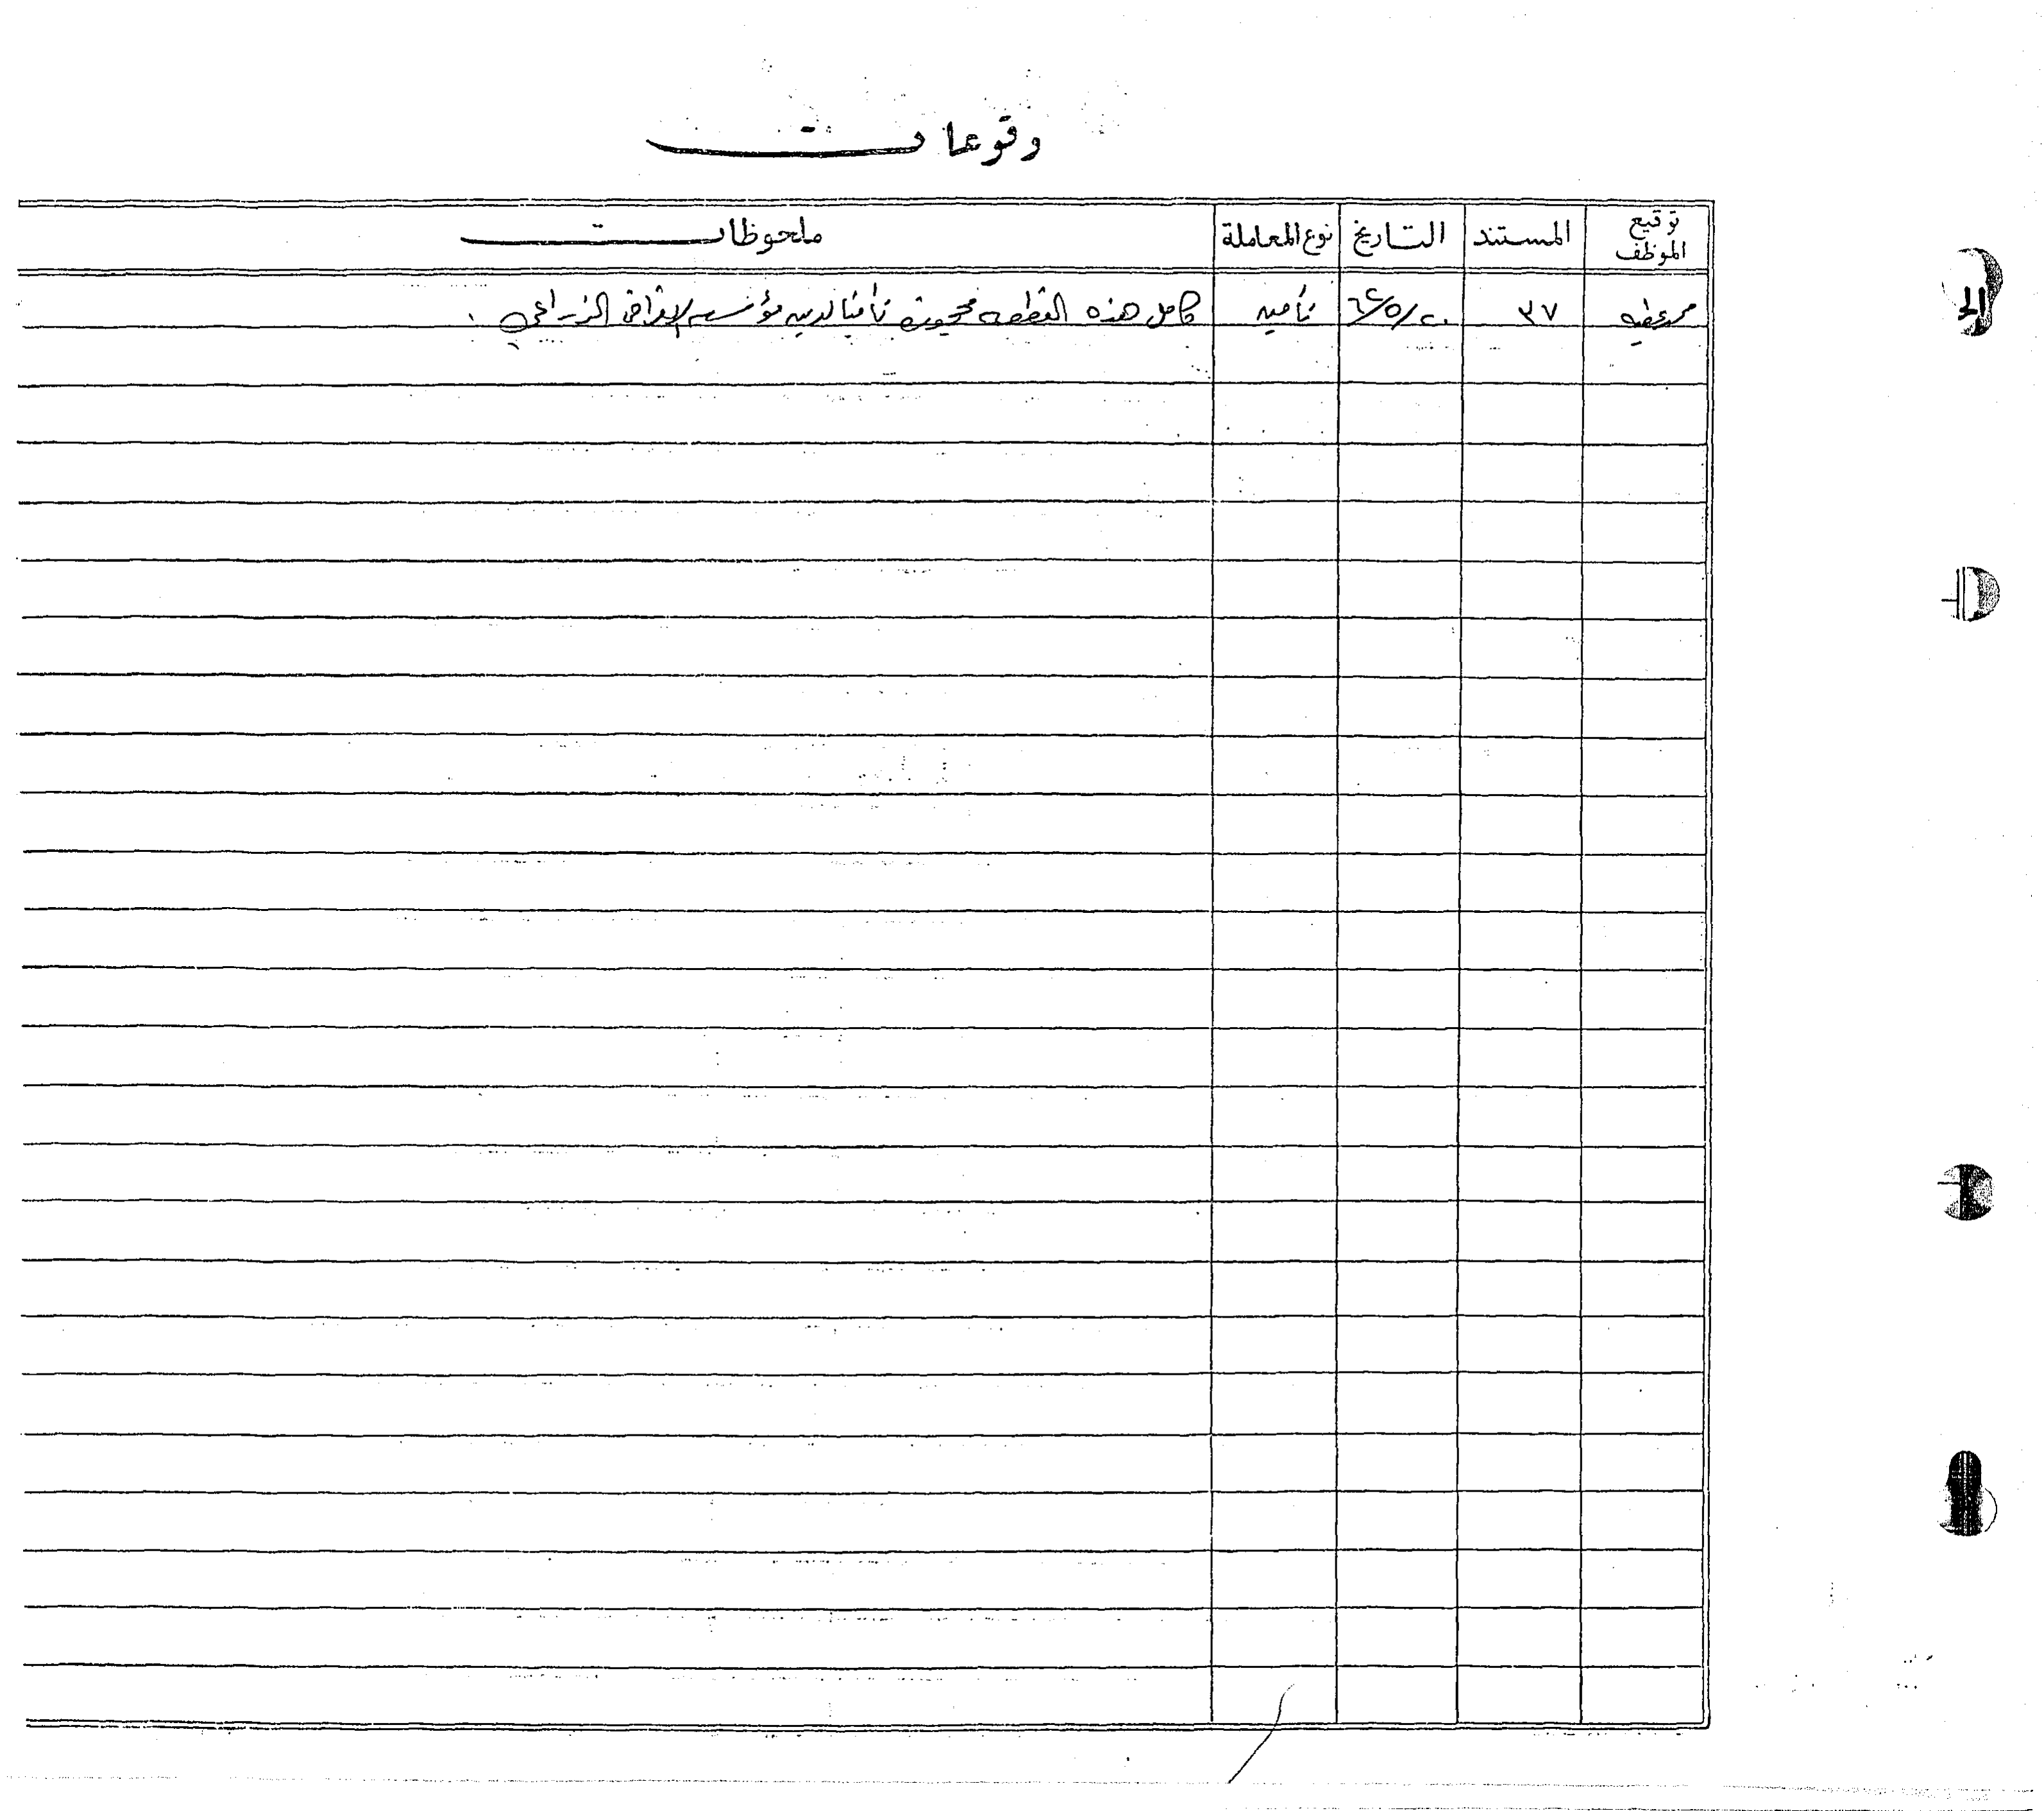 وقوعات
توقيع الموظف المستند التاريخ نوع المعاملة ملحوظات
٣٧ ٢٠/٥/٦٤ تأمين كامل هذه القطعه محجوزة تأمينا لدين مؤسسة الاقراض الزراعي .